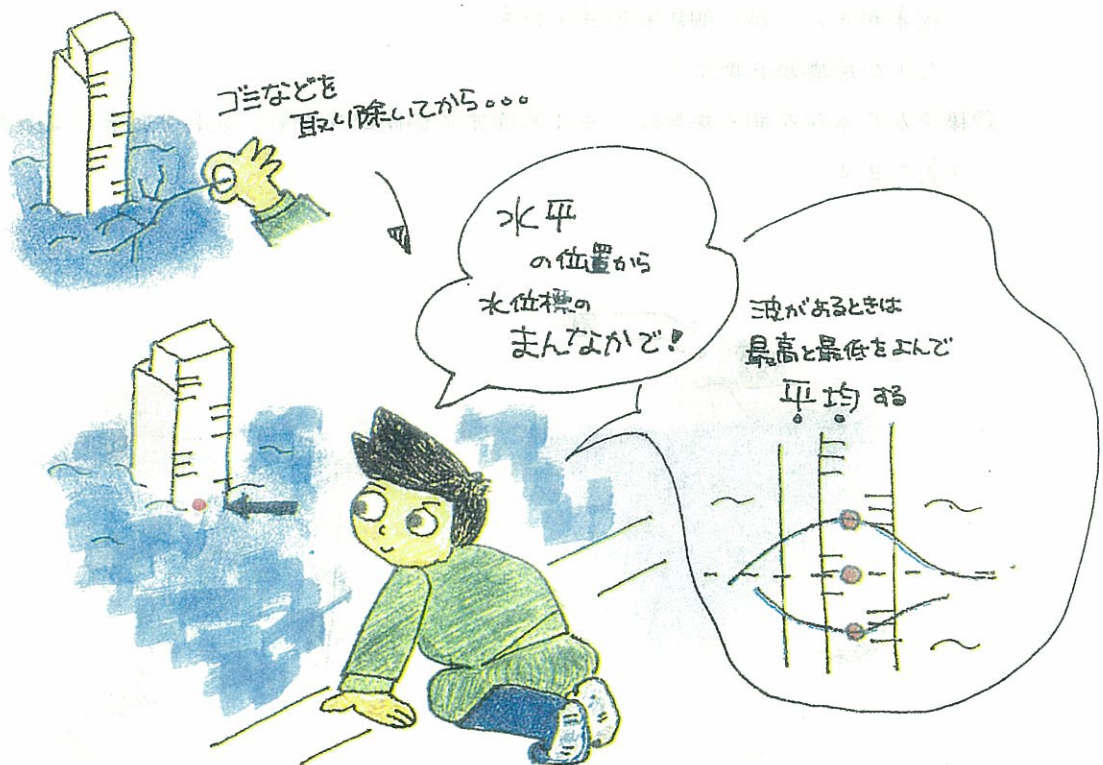 ゴミなどを
取り除いてから。。。
水平
の位置から
水位標の
まんなかで!
波があるときは
最高と最低をよんで
平均する